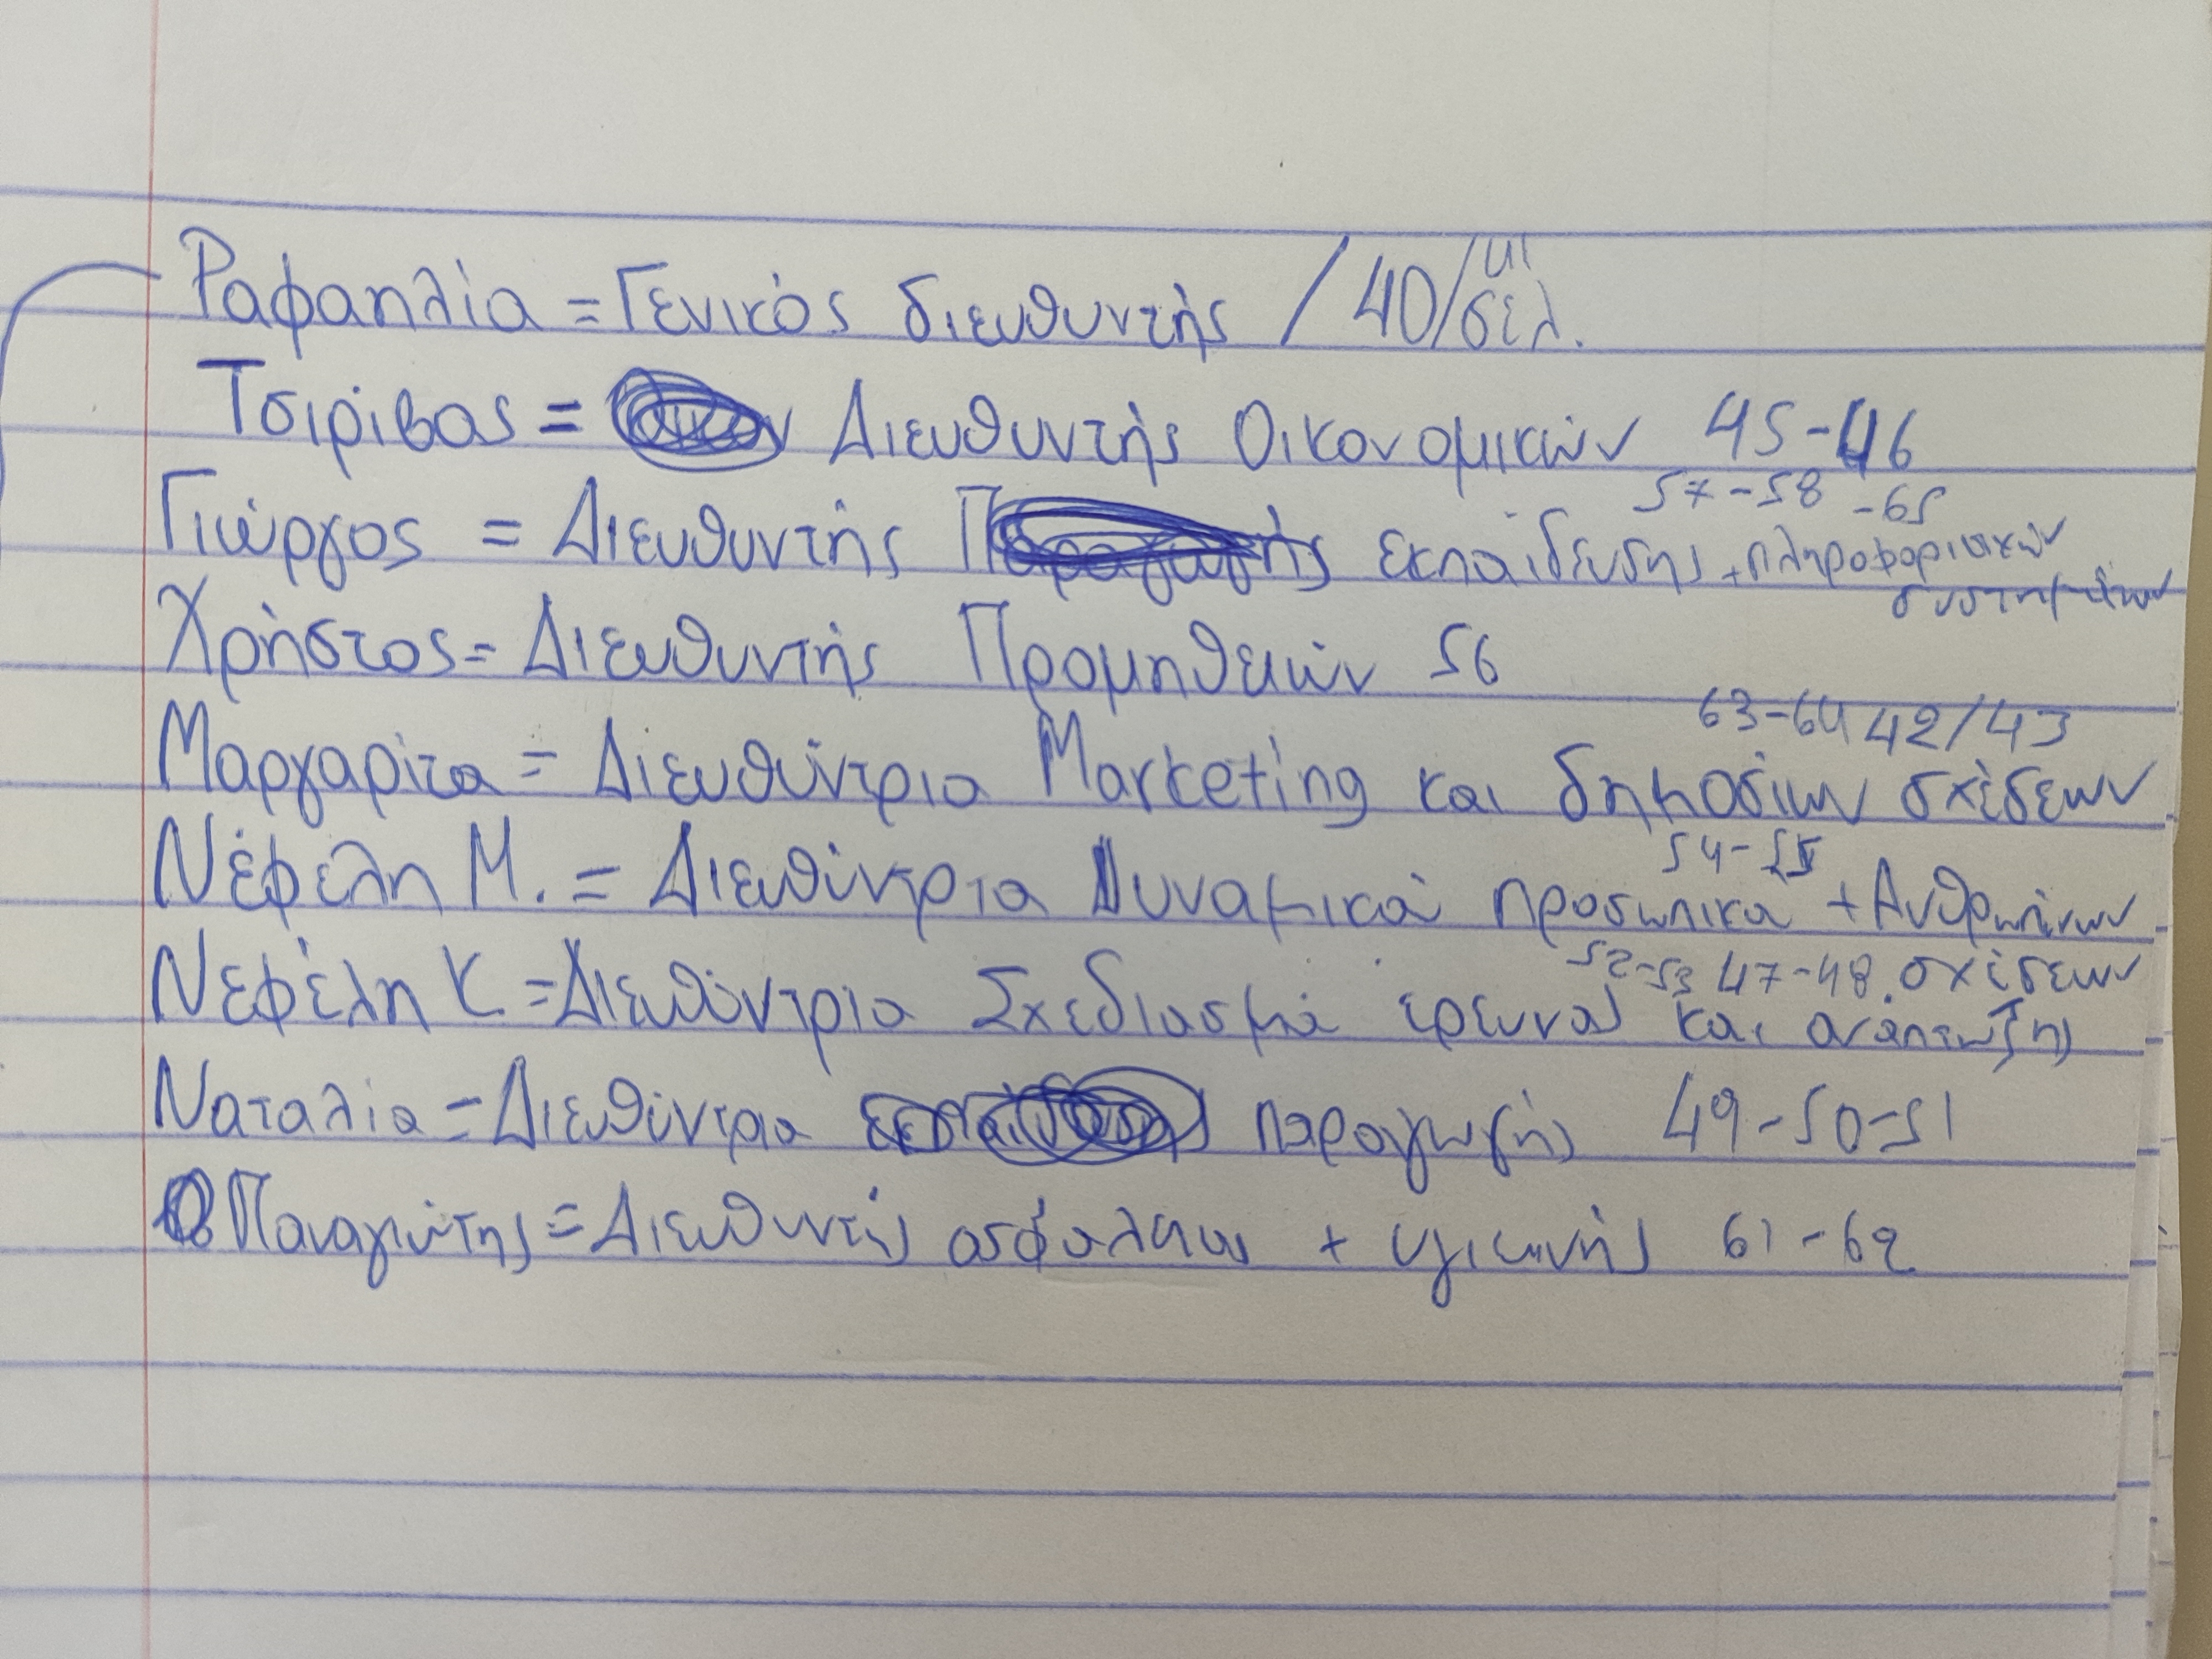 Ραφαηλία = Γενικός διευθυντής / 40/41 σελ.
Τσιρίβας = Διευθυντής Οικονομικών 45-46
57-58 -65
Γιώργος = Διευθυντής εκπαίδευσης + πληροφοριακών
συστημάτων
Χρήστος = Διευθυντής Προμηθειών 56
63-64 42/43
Μαργαρίτα = Διευθύντρια Marketing και δημοσίων σχέσεων
54-55
Νέφέλη Μ. = Διευθύντρια Δυναμικού προσωπικού + Ανθρωπίνων
52-53 47-48 . σχέσεων
Νεφέλη Κ. = Διευθύντρια Σχεδιασμού έρευνας και ανάπτυξης
Ναταλία = Διευθύντρια παραγωγής 49-50-51
Παναγιώτης = Διευθυντής ασφάλειας + υγιεινής 61-62